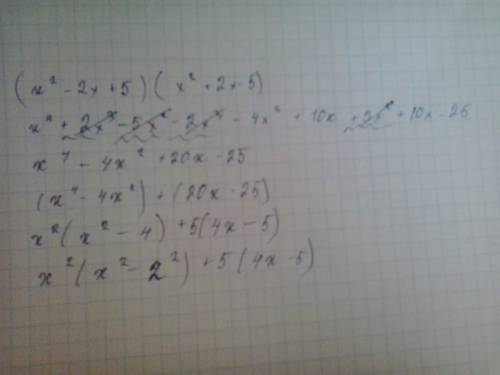 (x² - 2x + 5)(x² + 2x - 5)
x⁴ + 2x³ - 5x² - 2x³ - 4x² + 10x + 5x² + 10x - 25
x⁴ - 4x² + 20x - 25
(x⁴ - 4x²) + (20x - 25)
x²(x² - 4) + 5(4x - 5)
x²(x² - 2²) + 5(4x - 5)